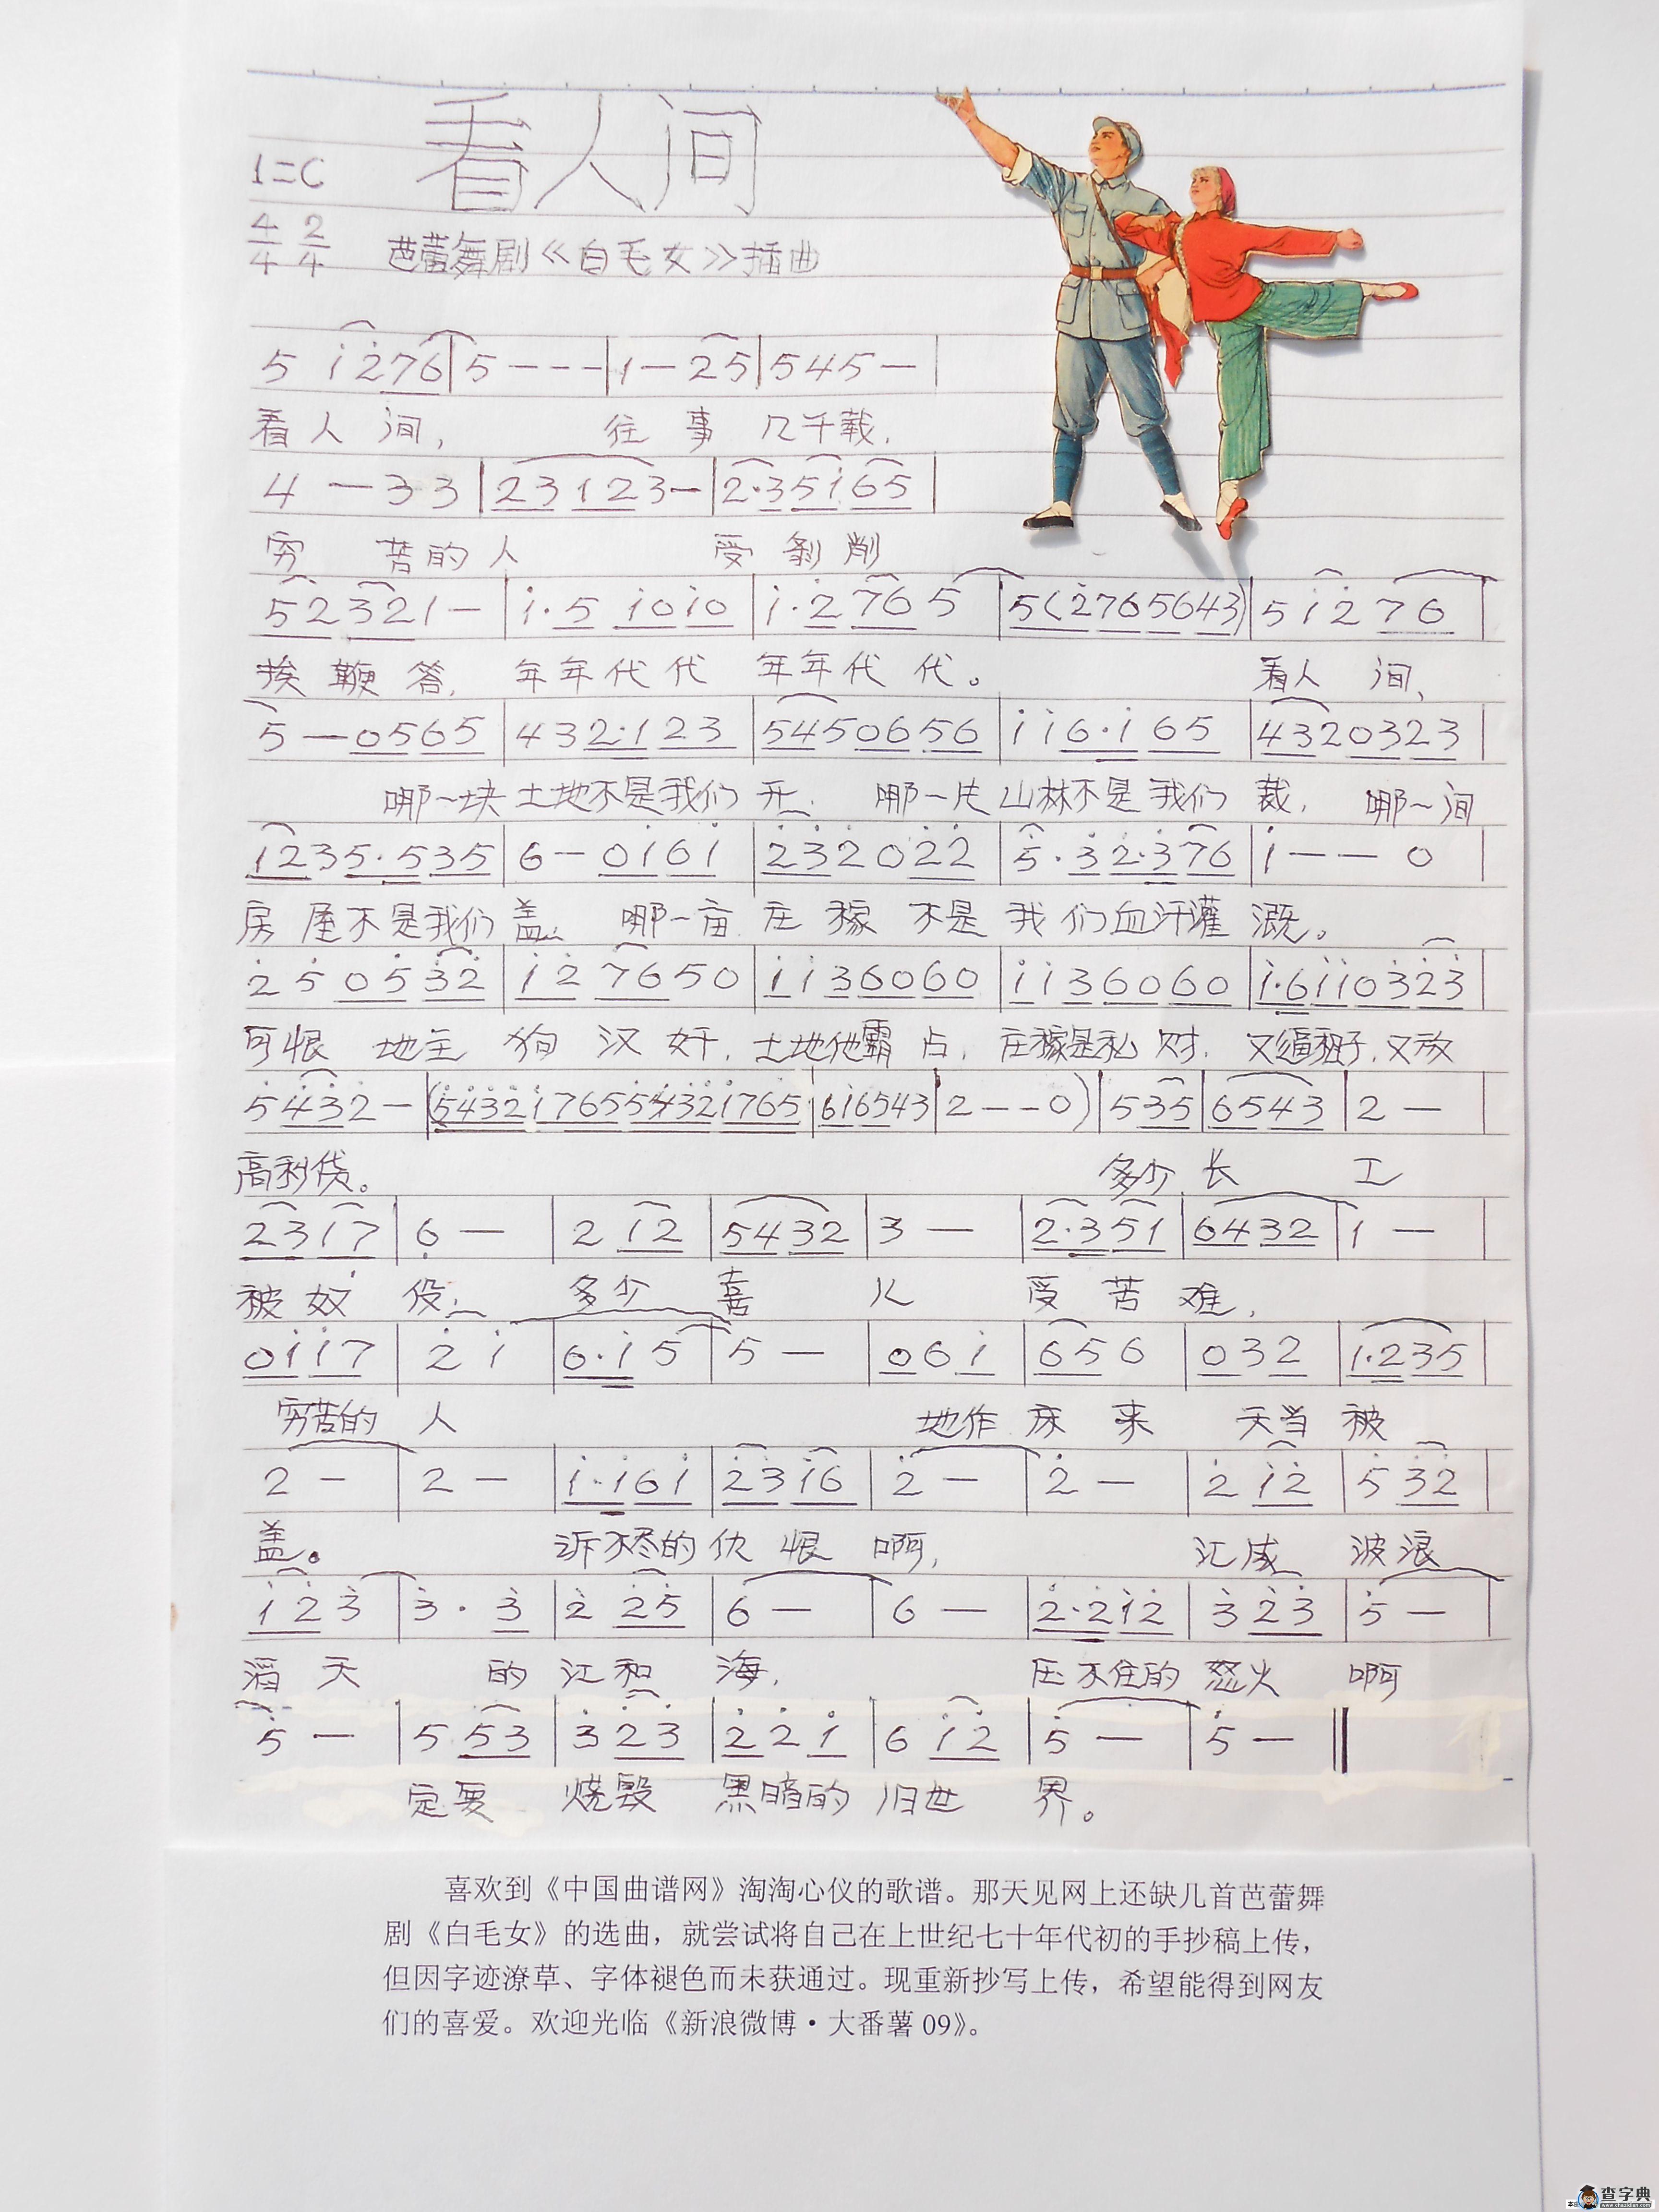 看人间
1=C
4/4 2/4 芭蕾舞剧《白毛女》插曲
5 i̇ 2̇ 7 6 | 5 - - - | 1 - 2 5 | 5 4 5 - |
看人间, 往事几千载,
4 - 3 3 | 2 3 1 2 3 - | 2·3 5 i̇ 6 5 |
穷苦的人 受剥削
5 2 3 2 1 - | i̇·5 i̇ 0 i̇ 0 | i̇·2̇ 7 6 5 | 5 (2̇ 7 6 5 6 4 3) | 5 i̇ 2̇ 7 6 |
挨鞭答, 年年代代 年年代代。 看人间,
5 - 0 5 6 5 | 4 3 2·1 2 3 | 5 4 5 0 6 5 6 | i̇ i̇ 6·i̇ 6 5 | 4 3 2 0 3 2 3 |
哪一块土地不是我们开, 哪一片山林不是我们裁, 哪一间
1 2 3 5·5 3 5 | 6 - 0 i̇ 6 i̇ | 2̇ 3̇ 2̇ 0 2̇ 2̇ | 5̇·3̇ 2̇·3̇ 7 6 | i̇ - - 0
房屋不是我们盖, 哪一亩庄稼不是我们血汗灌溉。
2̇ 5̇ 0 5̇ 3̇ 2̇ | i̇ 2̇ 7 6 5 0 | i̇ i̇ 3 6 0 6 0 | i̇ i̇ 3 6 0 6 0 | i̇·6 i̇ i̇ 0 3̇ 2̇ 3̇ |
可恨地主狗汉奸, 土地他霸占, 庄稼是私财, 又逼租子, 又放
5̇ 4̇ 3̇ 2̇ - | (5̇ 4̇ 3̇ 2̇ i̇ 7 6 5 5̇ 4̇ 3̇ 2̇ i̇ 7 6 5 | 6 i̇ 6 5 4 3 | 2 - - 0) | 5 3 5 | 6 5 4 3 | 2 - |
高利贷。 多少长工
2 3 1 7̣ | 6̣ - | 2 1 2 | 5 4 3 2 | 3 - | 2·3 5 1 | 6 4 3 2 | 1 - |
被奴役, 多少喜儿受苦难,
0 i̇ i̇ 7 | 2̇ i̇ | 6·i̇ 5 | 5 - | 0 6 i̇ | 6 5 6 | 0 3 2 | 1·2 3 5 |
穷苦的人 地作床来天当被
2 - | 2 - | i̇·i̇ 6 i̇ | 2̇ 3̇ i̇ 6 | 2̇ - | 2̇ - | 2̇ i̇ 2̇ | 5̇ 3̇ 2̇ |
盖。 诉不尽的仇恨啊, 汇成波浪
i̇ 2̇ 3̇ | 3̇·3̇ | 2̇ 2̇ 5̇ | 6 - | 6 - | 2̇·2̇ i̇ 2̇ | 3̇ 2̇ 3̇ | 5̇ - |
滔天的江和海, 压不住的怒火啊
5̇ - | 5 5 3 | 3̇ 2̇ 3̇ | 2̇ 2̇ i̇ | 6 i̇ 2̇ | 5̇ - | 5̇ - ‖
定要烧毁黑暗的旧世界。
喜欢到《中国曲谱网》淘淘心仪的歌谱。那天见网上还缺几首芭蕾舞
剧《白毛女》的选曲，就尝试将自己在上世纪七十年代初的手抄稿上传，
但因字迹潦草、字体褪色而未获通过。现重新抄写上传，希望能得到网友
们的喜爱。欢迎光临《新浪微博·大番薯 09》。
查字典
www.chazidian.com